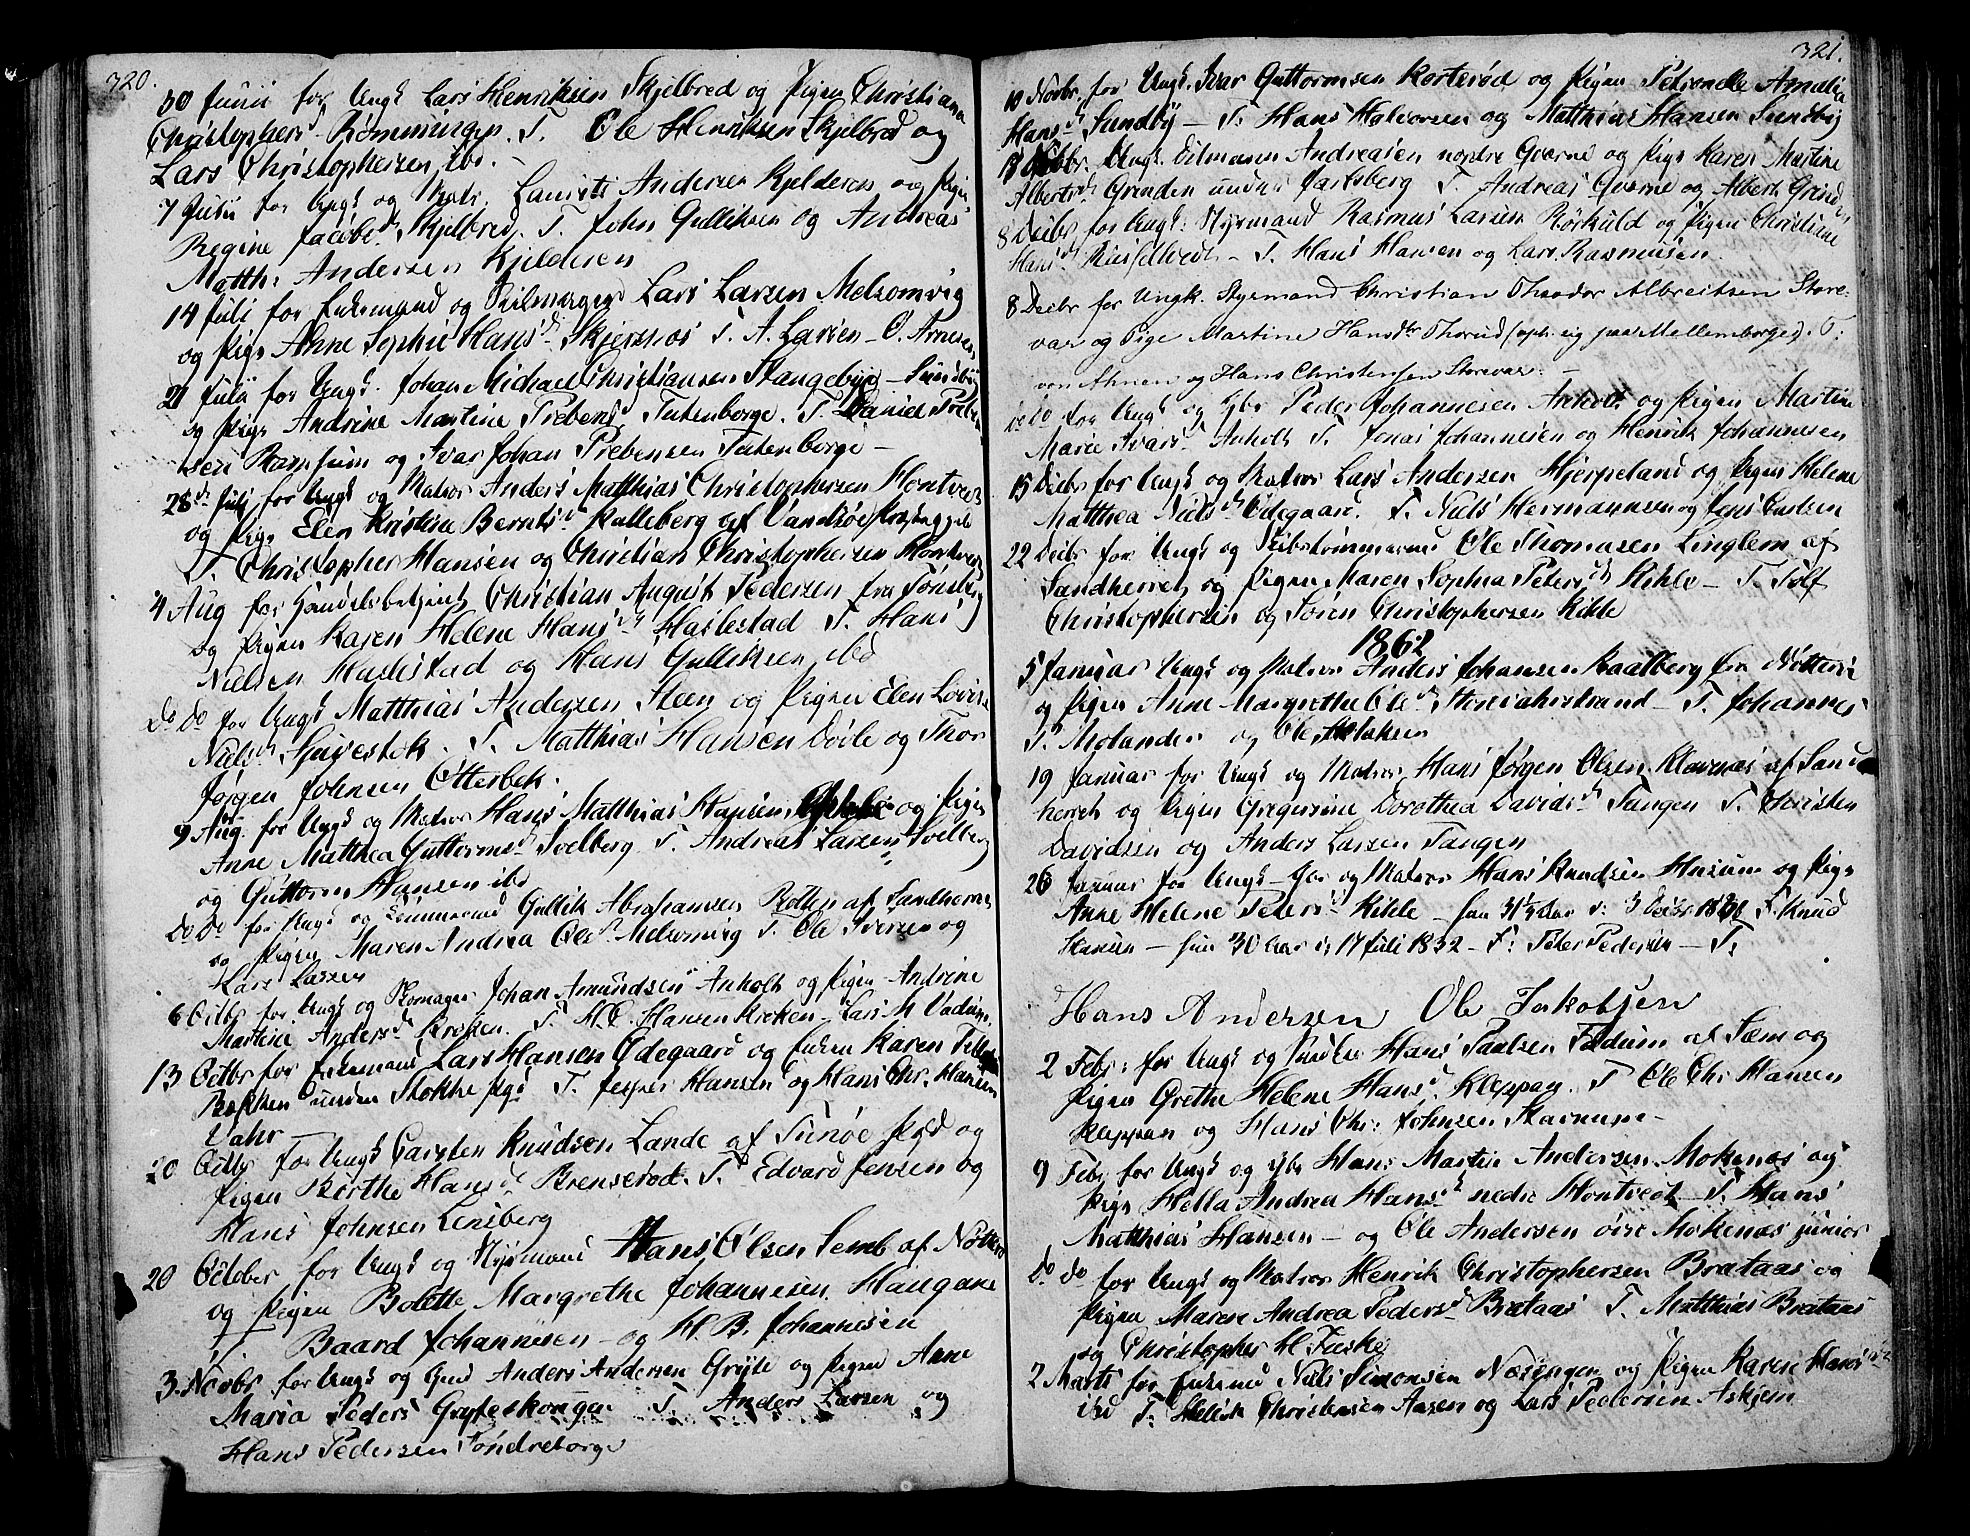 320.
30 Juni for Ungk Lars Henriksen Skjelbred og Pigen Christiane
Christophersd. Rømmingen. T. Ole Henriksen Skjelbred og
Lars Christophersen ibd. -
7 Juli for Ungk og Matr. Laurits Andersen Kjelderen og Pigen
Regine Jacobsd. Skjelbred. T. John Gulliksen og Andreas
Matth: Andersen Kjelderen
14 Juli for Enkemand og Lars Larsen Melsomvig
og Pige Anne Sophie Hansd. Skjersnes T. A. Larsen - O. Arnesen
21 Julii for Ungk. Johan Michael Christiansen Stangeby - Sundby
og Pige Andrine Martine Prebensd. Tutenborge. T. Daniel Preben
sen Ramsum og Ivar Johan Prebensen Tutenborge -
28de Juli for Ungk og Matros Anders Matthias Christophersen Hontvet
og Pige Elen Kristine Berntsd. Kalleberg af
T. Christopher Hansen og Christian Christophersen Hontvet
4 Aug for Handelsbetjent Christian August Pedersen fra Tønsberg
og Pigen Karen Helene Hansd. Haslestad T. Hans
Nielsen Haslestad og Hans Gulliksen ibd
Do Do for Ungk Matthias Andersen Steen og Pigen Elen Lovise
Nielsd. Gjivestok. T. Matthias Hansen Døvle og Thor
Jørgen Johnsen Otterbek.
9 Aug. for Ungk og Matros Hans Matthias Hansen og Pigen
Anne Matthea Guttormsd. Svelberg T. Andreas Larsen Svelberg
og Guttorm Hansen ibd
Do Do for Ungk og Tømmermd Gullik Abrahamsen af Sandherred
og Pigen Maren Andrea Olsd. Melsomvig T. Ole Iversen og
Lars Larsen
6 Octbr for Ungk og Skomager Johan Amundsen Anholt og Pigen Andrine
Martine Andersd. Kroken. T. H. C. Hansen Kroken - Lars M.
13 Octbr for Enkemand Lars Hansen Ødegaard og Enken Karen
Bakken under Stokke Pgd T. Jesper Hansen og Hans Chr. Hansen
Vahr -
20 Octbr for Ungk Carsten Knudsen Lande af Tjmøe Pgd og
Pigen Birthe Hansd. Brenserød. T. Edvard Jensen og
Hans Johnsen Lensberg
20 October for Ungk og Styrmand Hans Olsen Semb af Nøtterø
og Pigen Bolette Margrethe Johannesen Haugane
T. Baard Johannesen - og H. B. Johannesen
3. Novbr for Ungk og Anders Andersen Gryte og Pigen Anne
Maria Peders T. Anders Larsen og
Hans Pedersen Søndreborge
321.
10 Novbr. for Ungk. Ivar Guttormsen Korterød og Pigen Petronelle Amalia
Hansd. Sundby - T. Hans Halvorsen og Matthias Hansen Sundby
Ungk. Andreasen nordre Goerne og Pige Karen Martine
Albertsd. Grinden under Jarlsberg T. Andreas Goerne og Albert Grinden
8 Decbr for Ungk: Styrmand Rasmus Larsen Rørkuld og Pigen Christine
Hansd. - T. Hans Hansen og Lars Rasmusen.
8 Decbr for Ungk. Styrmand Christian Theodor Albreitsen Store-
var og Pige Martine Hansdtr Thorud (oph. sig paa Mellemborge). T.
von Ahnen og Hans Christensen Storevar. -
Do Do for Ungk og Peder Johannesen Anholt og Pigen Martine
Marie Ivarsd. Anholt T. Jonas Johannesen og Henrik Johannesen
15 Decbr for Ungk og Matros Lars Andersen Hjerpeland og Pigen Helene
Matthea Nielsd. Ødegaard. T. Niels Hermannsen og Jens
22 Decbr for Ungk og Skibstømmermd Ole Thomasen Linglem af
Sandherred og Pigen Maren Sophia Petersd. Kihle - T. Tolf
Christophersen og Søren Christophersen Kihle
1862
5 Januar Ungk og Matros Anders Johansen Kaalberg fra Nøtterø
og Pigen Anne Margrethe Olsd. - T. Johannes
T. Molander og Ole
19 Januar for Ungk og Matros Hans Jørgen Olsen Klavnæs af Sand
herred og Pigen Gregersine Dorothea Davidsd. Tangen T. Christen
Davidsen og Anders Larsen Tangen
26 Januar for Ungk - og Matros Hans Knudsen og Pige
Anne Helene Petersd. Kihle - han 31⅓ Aar f. 3 Decbr F. Knud
Hansen - hun 30 Aar f. 17 Juli 1832 - F: Peter Pedersen - T:
Hans Andersen Ole Jakobsen
2 Febr: for Ungk og Hans Paulsen af Sæm og
Pigen Grethe Helene Hansd. Kleppan. T Ole Chr Hansen
Kleppan og Hans Chr: Johnsen -
9 Feb for Ungk og Hans Martin Andersen Mokenæs og
Pige Hella Andrea Hansd. nedre Hontvedt - T. Hans
Matthias Hansen - og Ole Andersen øvre Mokenæs junior
Do Do for Ungk og Matros Henrik Christophersen Brataas og
Pigen Maren Andrea Pedersd. Brataas T. Matthias Brataas
og Christopher H. Faske
2 Marts for Enkemd Niels Simonsen og Pigen Karen Hansd
ibd T: Christensen Aasen og Lars Pedersen Askjem